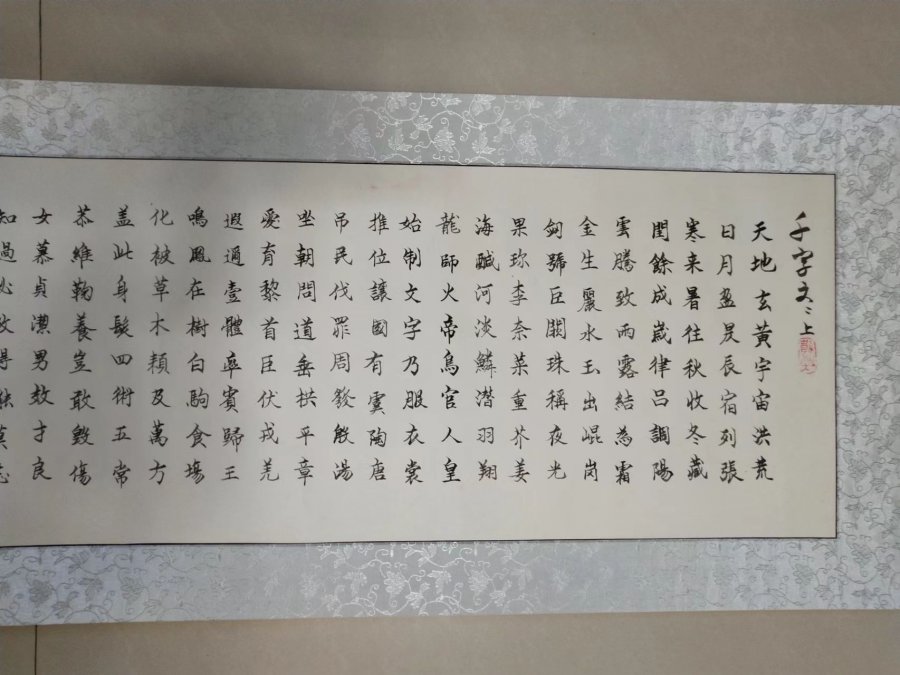 千字文之上
天地玄黃宇宙洪荒
日月盈昃辰宿列張
寒来暑往秋收冬藏
閏餘成嵗律吕調陽
雲騰致雨露結為霜
金生麗水玉出崐崗
劎號巨闕珠稱夜光
果珎李柰菜重芥姜
海鹹河淡鱗潛羽翔
龍師火帝鳥官人皇
始制文字乃服衣裳
推位讓國有虞陶唐
吊民伐罪周發殷湯
坐朝問道垂拱平章
愛育黎首臣伏戎羌
遐邇壹體率賓歸王
鳴鳳在樹白駒食場
化被草木賴及萬方
盖此身髮四術五常
恭維鞠養豈敢毀傷
女慕貞潔男效才良
知過必改得能莫忘